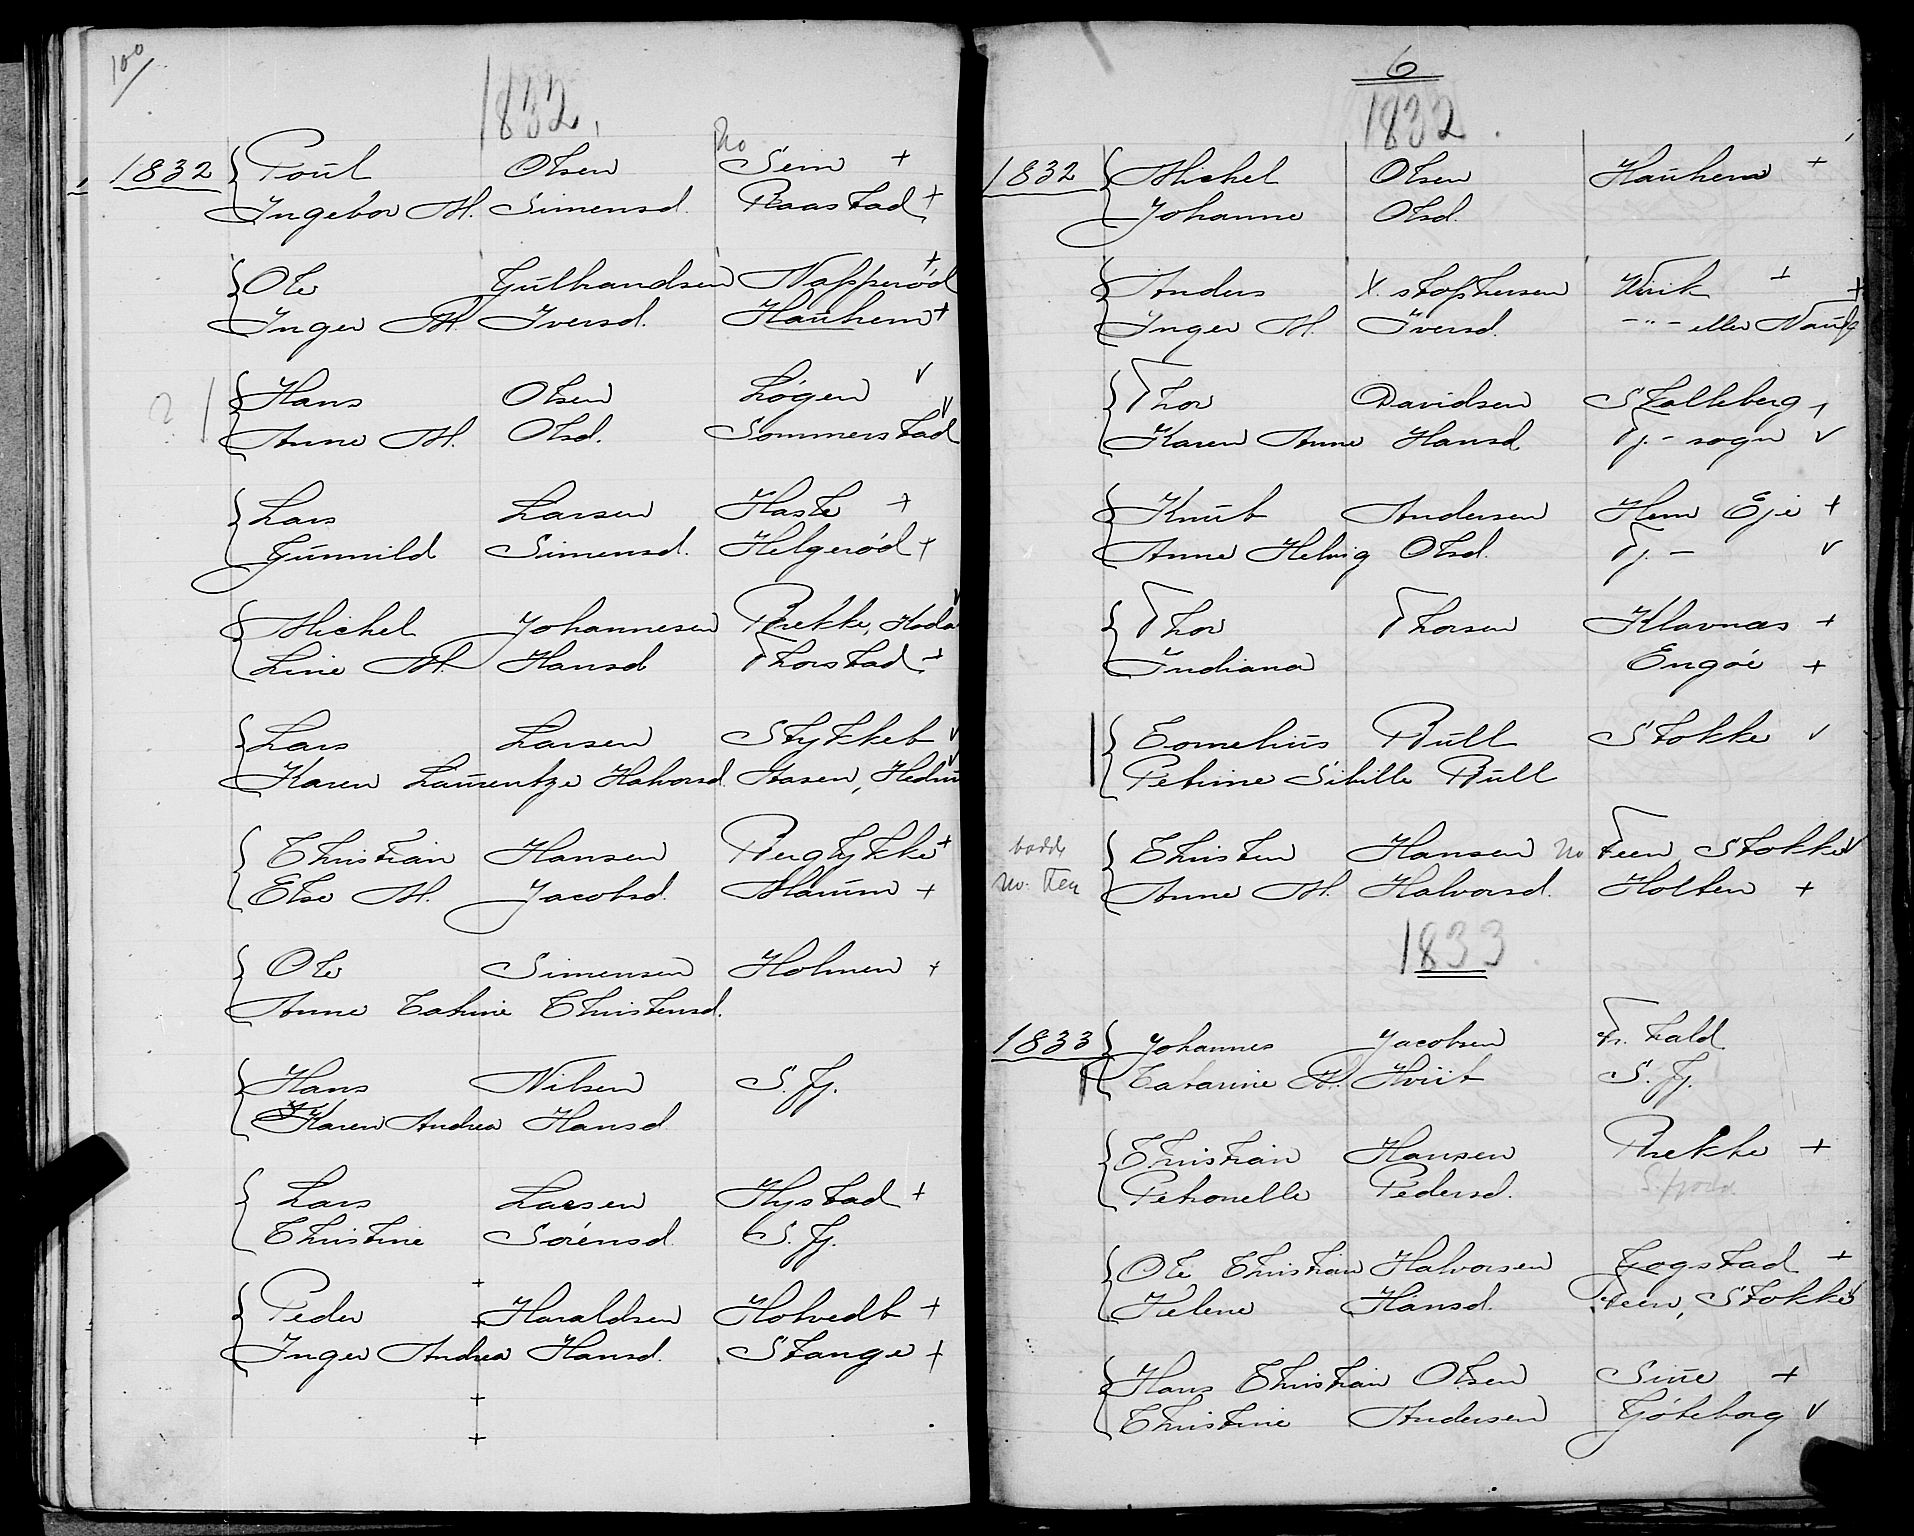 100
1832.
No
1832 Poul Olsen Sem +
Ingebor M. Simensd. Raastad +
Ole Gulbrandsen Napperød +
Inger M. Iversd. Hauhem +
Hans Olsen Løgen v
2 Anne M. Olsd. Sommerstad v
Lars Larsen Haslе +
Gunnild Simensd. Helgerød +
Michel Johannesen Brekke, Kodal v
Line M. Hansd Thorstad +
Lars Larsen Stykket v
Karen Laurentze Halvorsd. Aasen, Hedrum v
Christian Hansen Bergtykke +
Else M. Jacobsd. Marum +
Ole Simensen Holmen +
Anne Catrine Christensd.
Hans Nilsen S. fj.
Karen Andrea Hansd
Lars Larsen Hystad +
Christine Sørensd. S. fj.
Peder Haraldsen Hotvedt +
Inger Andrea Hansd. Stange +
6
1832.
1832 Michel Olsen Hauhem +
Johanne Olsd.
Anders X. stophersen Virik +
Inger M. Iversd. -"- eller Nauf +
Thor Davidsen Skalleberg +
Karen Anne Hansd Tj. - sogn v
Knut Andersen Hem Eje +
Anne Helvig Olsd. Tj. - v
Thor Thorsen Klavnæs +
Indiana Engøe +
Cornelius Bull Stokke v
Petrine Sibille Bull
bodde Christen Hansen No Feen Stokke v
no. Feen Anne M. Halvorsd. Holten +
1833.
1833 Johannes Jacobsen Fr. hald
Catarine M. Hviit S. fj.
Christian Hansen Brekke +
Petronelle Pedersd.
Ole Christian Halvorsen Gogstad +
Helene Hansd. Feen, Stokke v
Hans Christian Olsen Sue +
Christine Andersen Gøteborg v